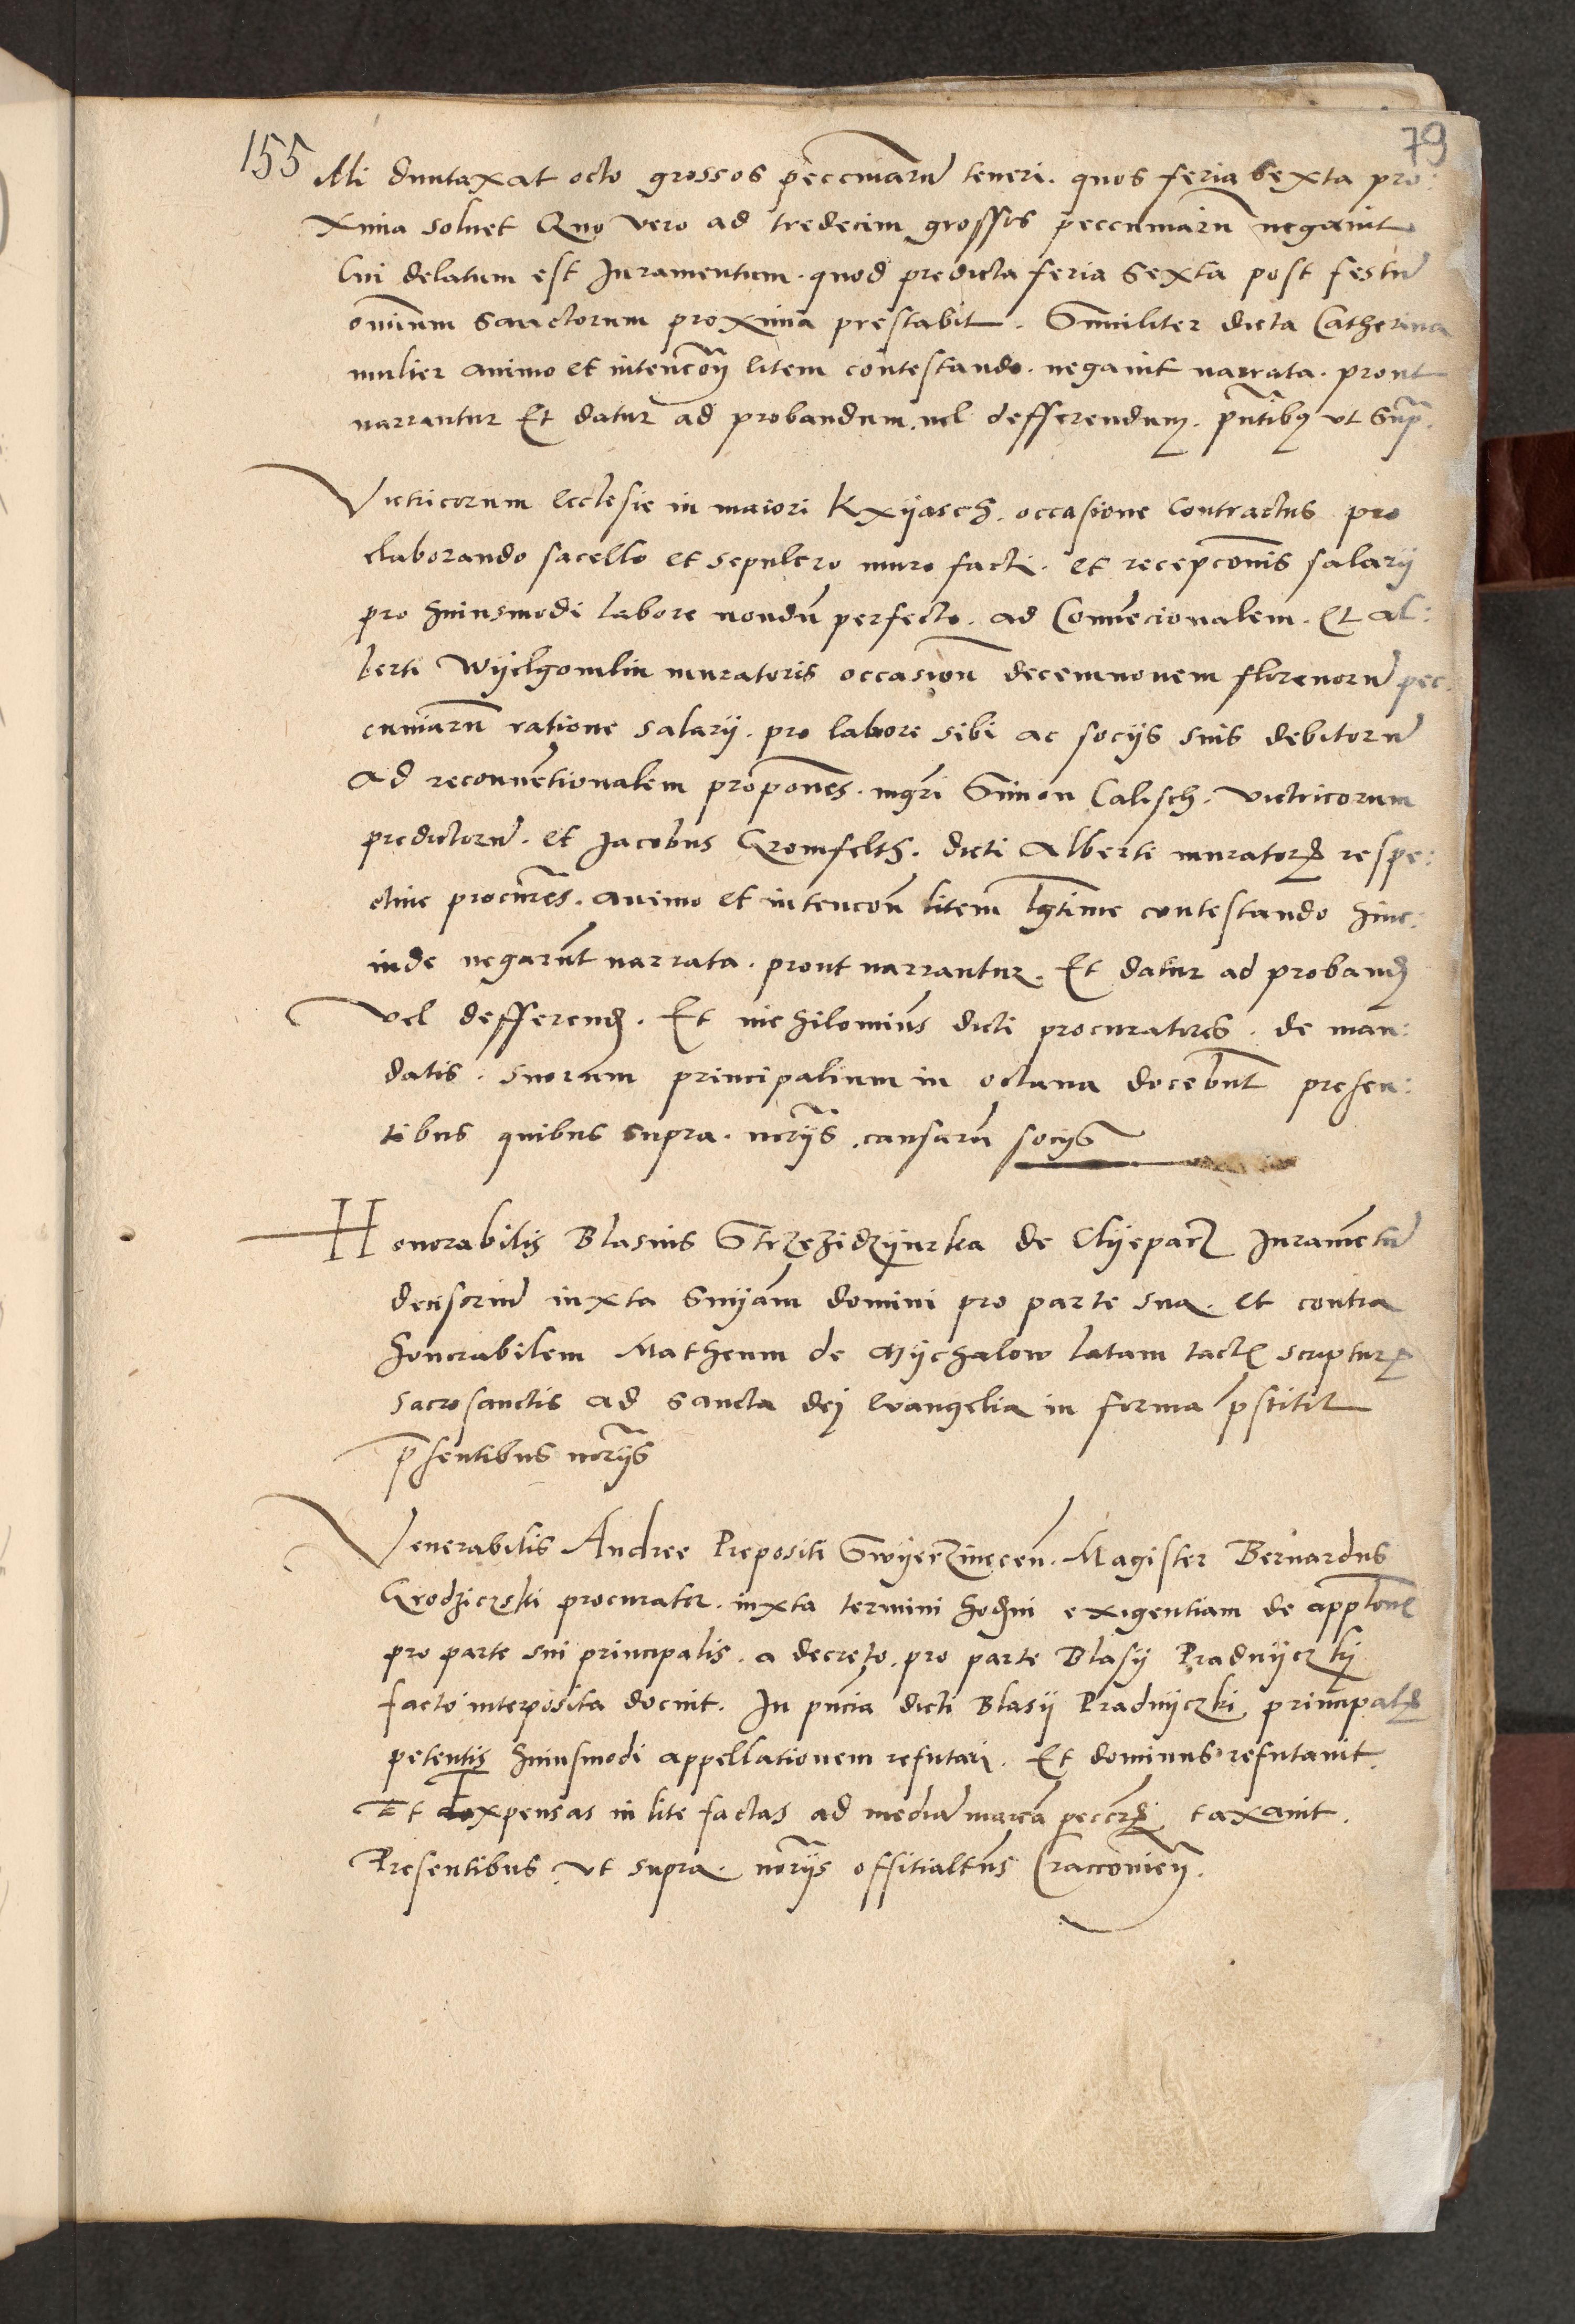 155
79
illi duntaxat octo grossos peccuniarũ teneri. quos feria sexta pro:
xima soluet Quo vero ad tredecim grossos peccuniarũ negauit
Cui delatum est Juramentum. quod predicta feria sexta post festũ
omiũm sanctorum proxima prestabit. Similiter dicta Catherina
mulier animo et intencoñ litem contestando. negauit narrata. prout
narrantur Et datur ad probandum. vel defferendum. pñtibus ut supᷓ.
Victricorum ecclesie in maiori Kxyasch. occasione contractus pro
elaborando sacello et sepulcro muro facti. et recepcõnis salarij
pro huiusmodi labore nondũ perfecto. ad Conuẽcionalem. Et Al:
berti Wyelgomlin muratoris occasioñ decemnouem florenorũ pec:
cuniarũ ratione salarij. pro labore sibi ac socijs suis debitorũ
Ad reconuẽtionalem propoñes. mgrĩ Simon Calisch. victricorum
predictorũ. et Jacobus Gromfelth. dicti Alberti muratoris respe:
ctiue procurĩes. animo et intencoñ litem lgtĩme contestando hinc:
inde negarũt narrata. prout narrantur. Et datur ad proband
vel defferend. Et nichilomiñs dicti procuratores. de man:
datis. suorum principalium in octaua docebũt presen:
tibus quibus supra. norĩjs causarũ socijs
Honorabilis Blasius Strzezidzynrka de Clyeparz Juramẽtũ
decisoriũ iuxta snyãm domini pro parte sua. et contra
honorabilem Matheum de Mychalow latam tactis scripturis
sacrosanctis ad sancta dej evangelia in forma p̃stitit
p̃sentibus norĩjs
Venerabilis Andree Prepositi Swyerzinecen̄. Magister Bernardus
Grodziczski procurator. iuxta termini hodini exigentiam de applõne
pro parte sui principalis. a decreto. pro parte Blasij Pradnyczky
facto interposita docuit. In pñcia dicti Blasij Pradnyczki principalis
petentis huiusmodi appellationem refutari. Et dominus refutauit.
Et expensas in lite factas ad mediã marcã peccuñ taxauit.
Presentibus ut supra. norĩjs offitialtũs Craccouieñ.